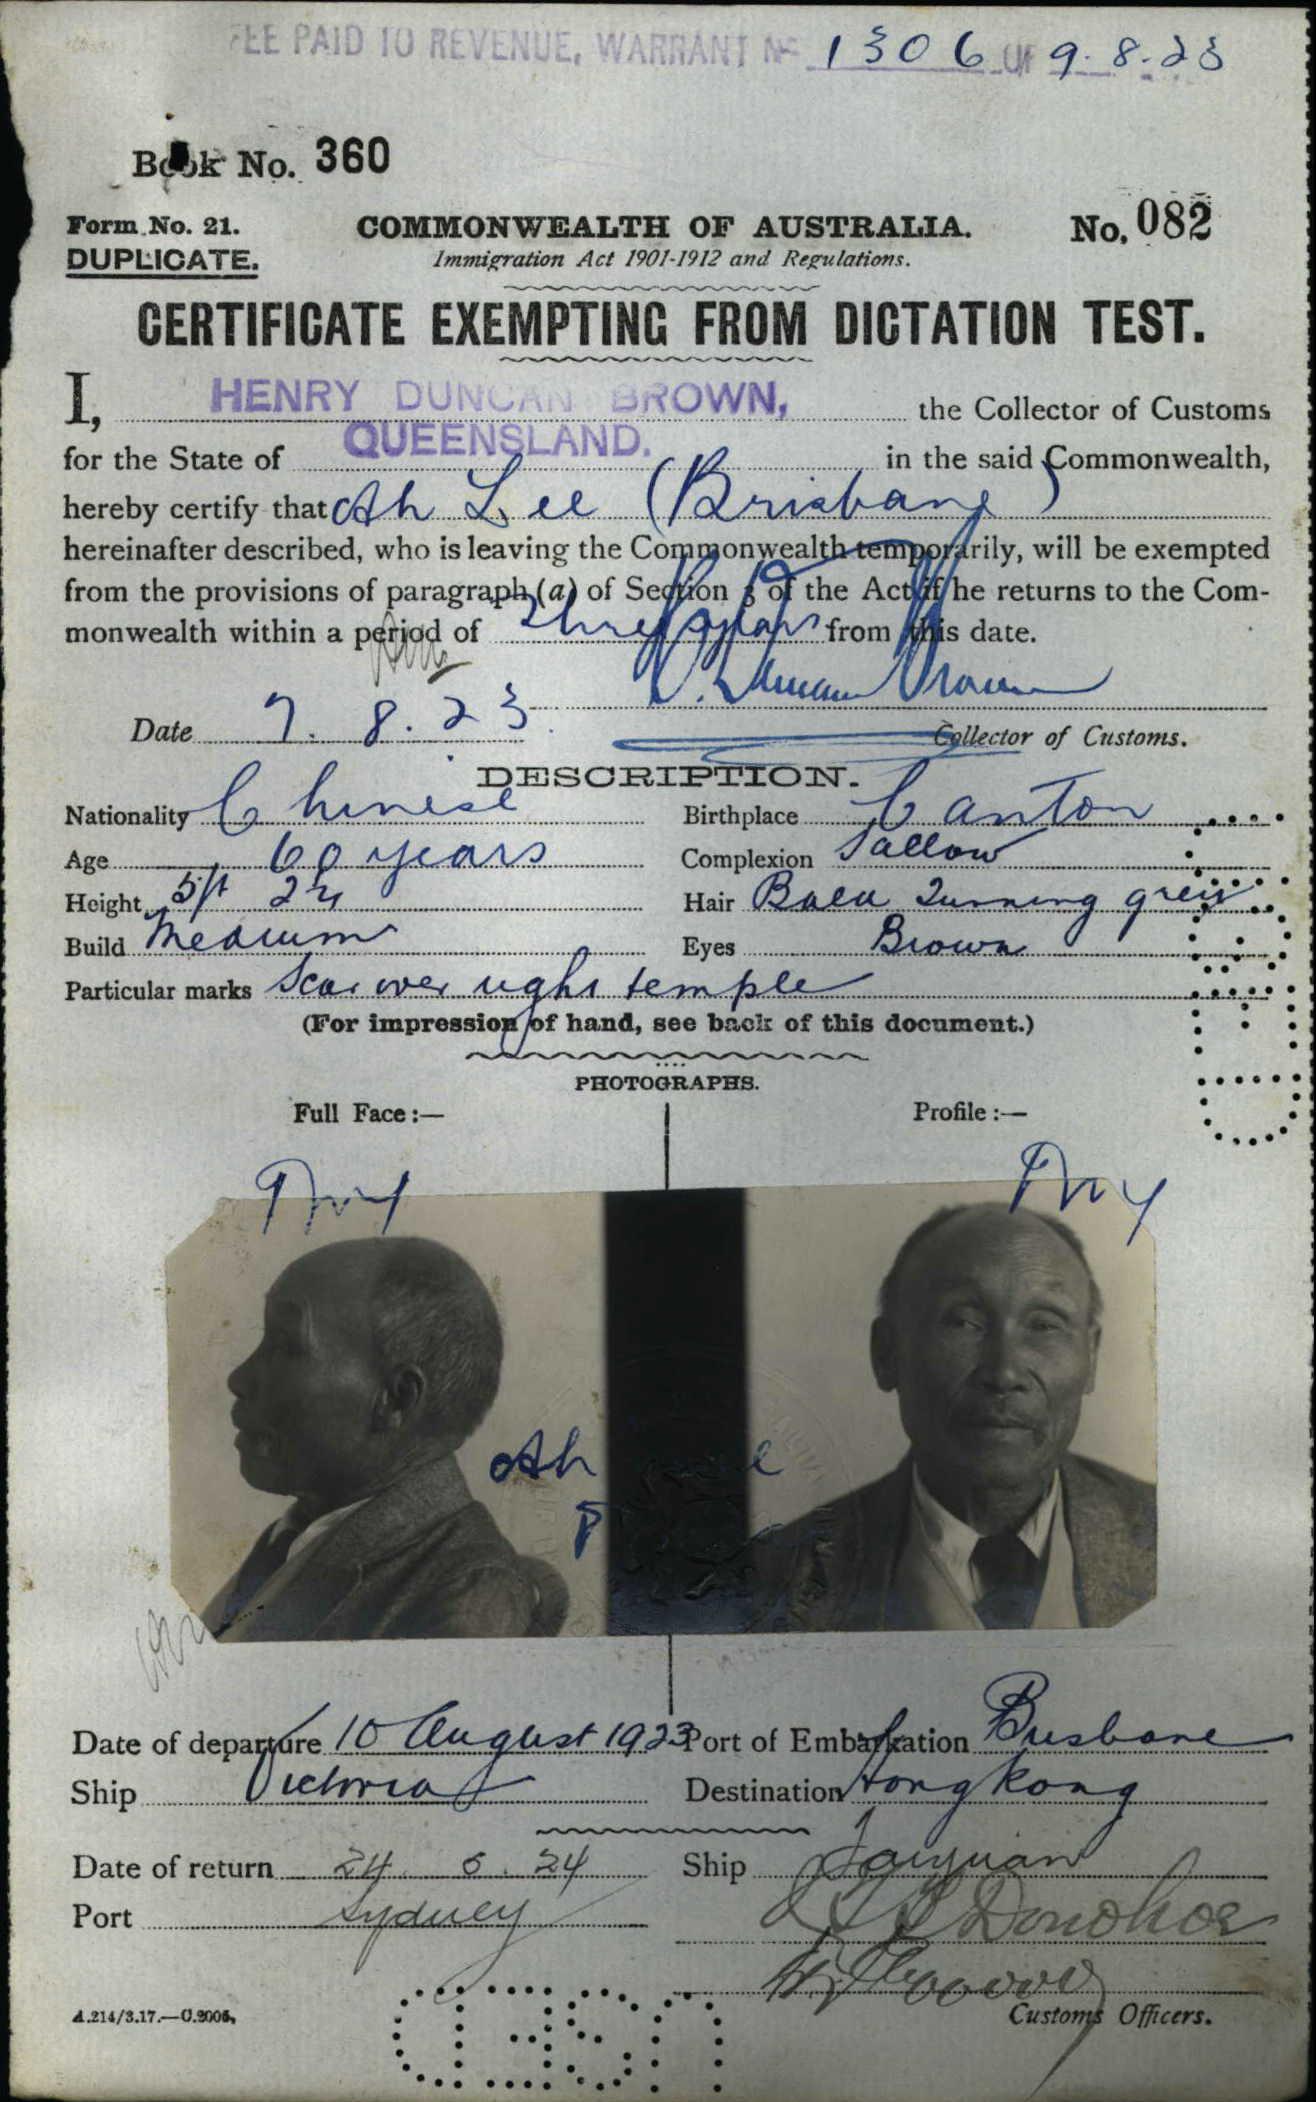 FEE PAID TO REVENUE, WARRANT No 1306 OF 9.8.23
Book No. 360
Form No. 21. COMMONWEALTH OF AUSTRALIA. No. 082
DUPLICATE. Immigration Act 1901-1912 and Regulations.
CERTIFICATE EXEMPTING FROM DICTATION TEST.
I, HENRY DUNCAN BROWN, the Collector of Customs
for the State of QUEENSLAND. in the said Commonwealth,
hereby certify that Ah Lee (Brisbane)
hereinafter described, who is leaving the Commonwealth temporarily, will be exempted
from the provisions of paragraph (a) of Section 3 of the Act if he returns to the Com-
monwealth within a period of Three years from this date.
H. Duncan Brown
Date 7.8.23. Collector of Customs.
DESCRIPTION.
Nationality Chinese Birthplace Canton
Age 60 years Complexion Sallow
Height 5ft 2¼ Hair Bald Turning grey
Build Medium Eyes Brown
Particular marks Scar over right temple
(For impression of hand, see back of this document.)
PHOTOGRAPHS.
Full Face:— Profile:—
Ah
Date of departure 10 August 1923 Port of Embarkation Brisbane
Ship Victoria Destination Hong Kong
Date of return 24.5.24 Ship Taiyuan
Port Sydney Donohoe
Customs Officers.
A.214/3.17.—C.2005.
USED